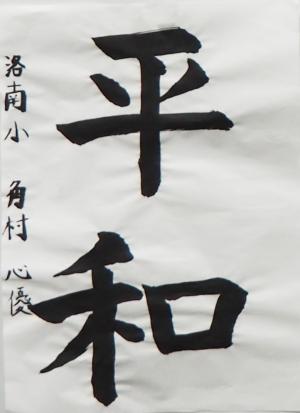 平和
洛南小 角村 心優